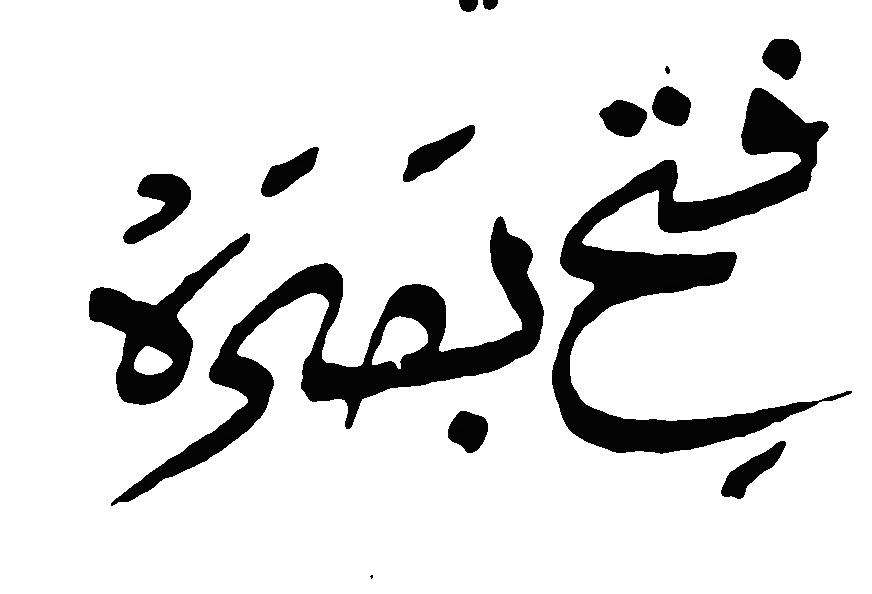 فتحِ بصَرَهُ